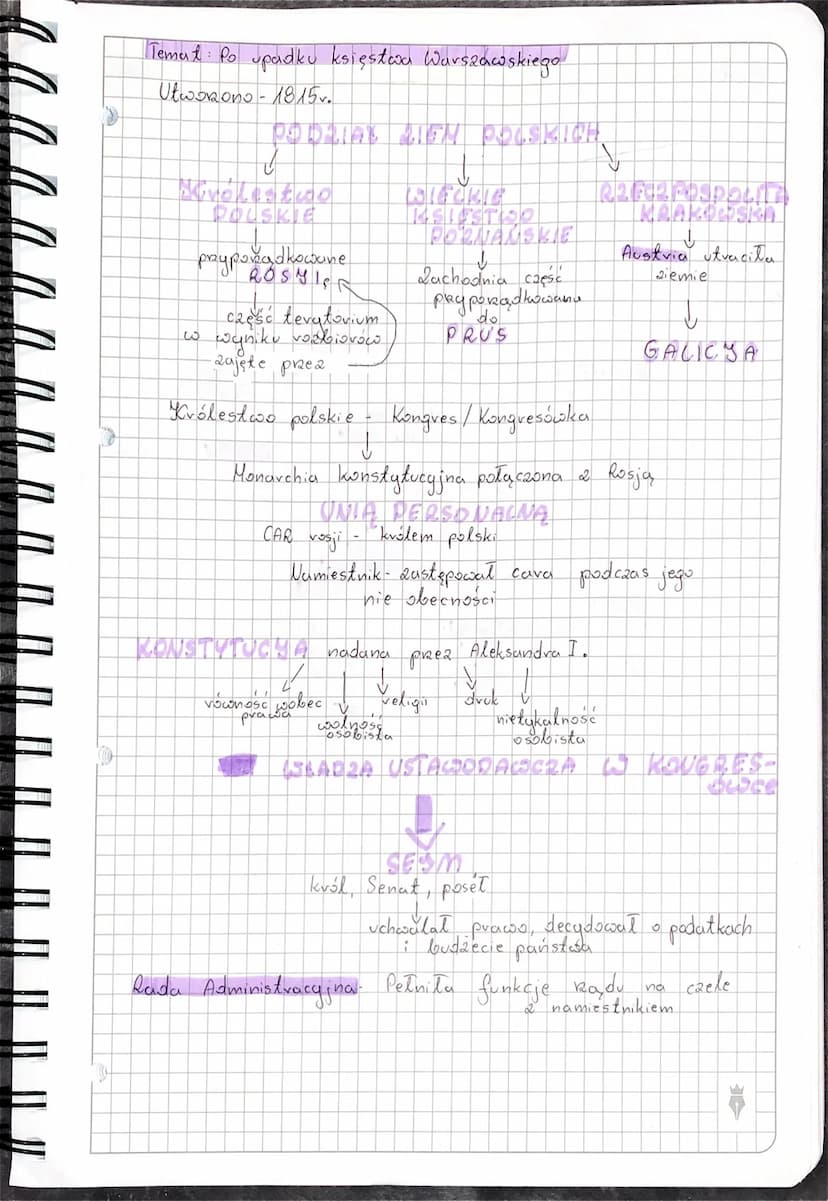 Temat: Po upadku księstwa Warszawskiego
Utworzono - 1815r.
PODZIAŁ ZIEM POLSKICH
Królestwo
POLSKIE
przyporządkowane
ROSYI
część terytorium
w wyniku rozbiorów
zajęte przez
WIELKIE
KSIĘSTWO
POZNAŃSKIE
Zachodnia część
przyporządkowana
do
PRUS
RZECZPOSPOLITA
KRAKOWSKA
Austria utraciła
ziemie
GALICYA
Królestwo polskie - Kongres/Kongresówka
Monarchia konstytucyjna połączona z Rosją
UNIĄ PERSONALNĄ
CAR rosji - królem polski
Namiestnik - zastępował cara podczas jego
nie obecności
KONSTYTUCYA nadana przez Aleksandra I.
równość wobec
prawa
wolność
osobista
religii
druk
nietykalność
osobista
WŁADZA USTAWODAWCZA W KONGRES-
ÓWCE
SEYM
król, Senat, poseł
uchwalał prawo, decydował o podatkach
i budżecie państwa
Rada Administracyjna - Pełniła funkcję rządu na czele
z namiestnikiem